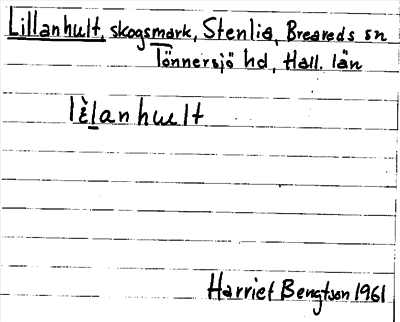 Lillanhult, skogsmark, Stenlia, Breareds sn
Tönnersjö hd, Hall. län
lèlanhult
Harriet Bengtson 1961